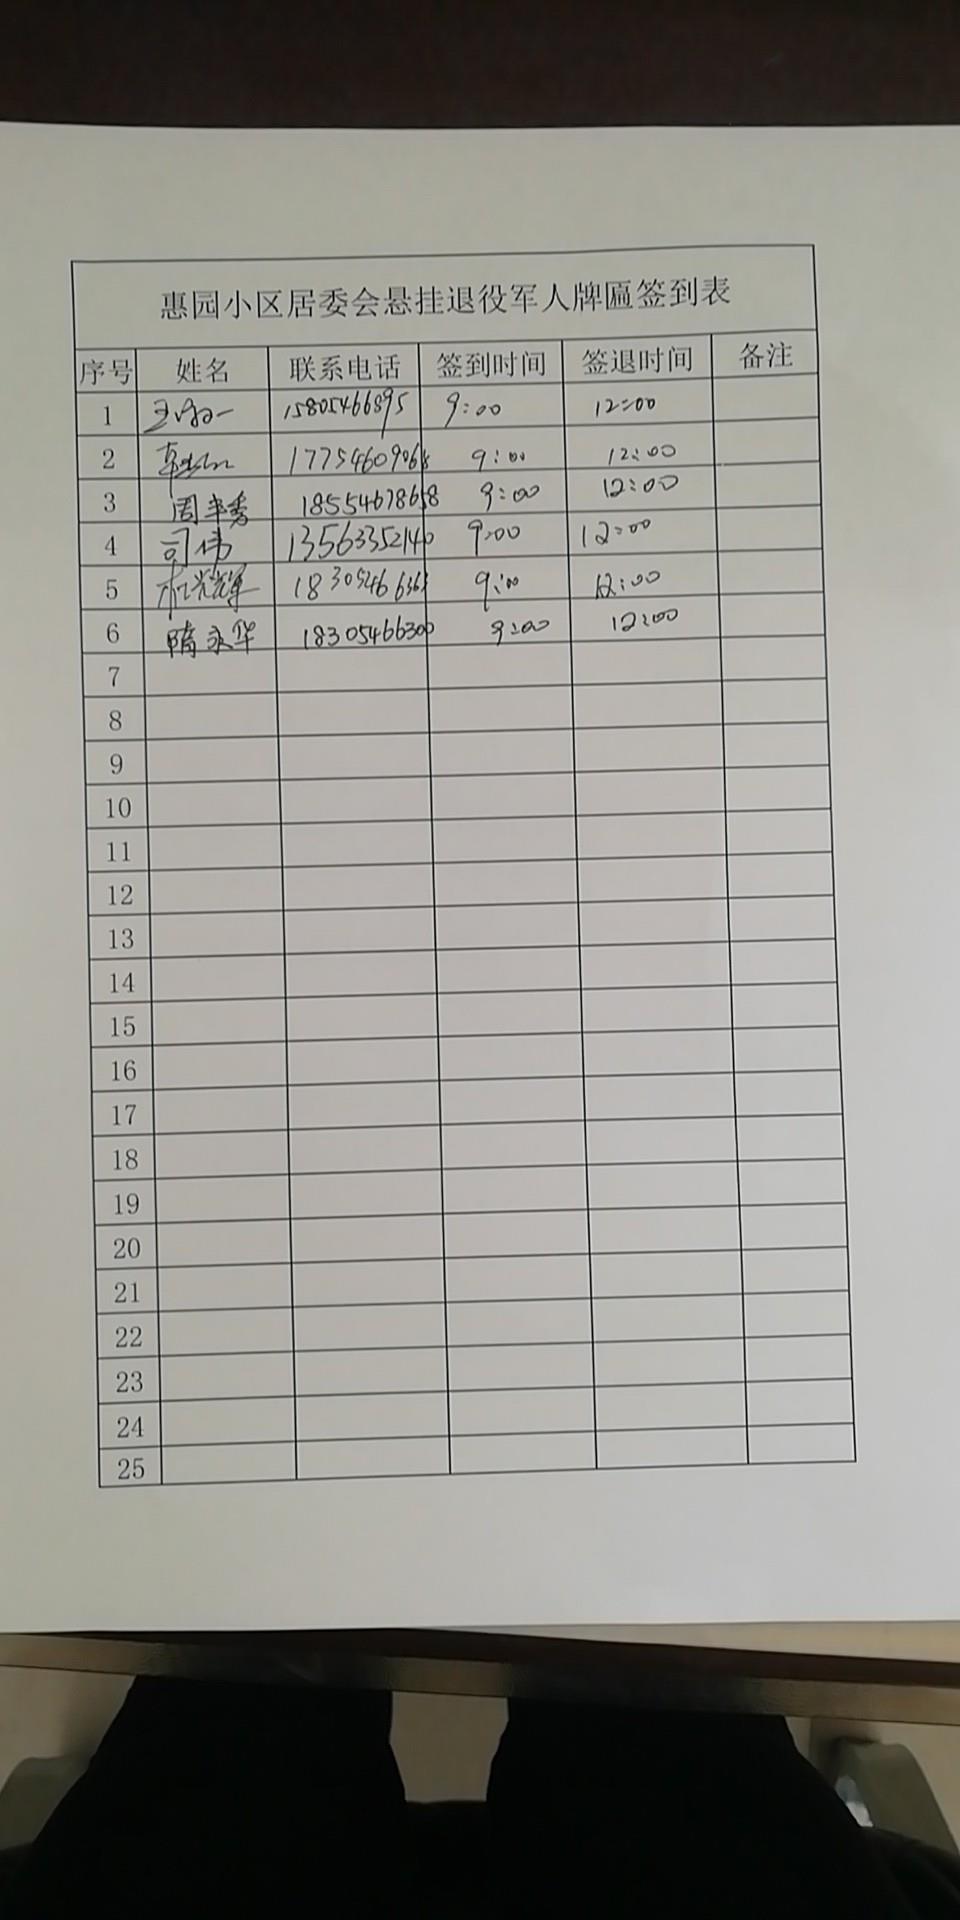 惠园小区居委会悬挂退役军人牌匾签到表
序号 姓名 联系电话 签到时间 签退时间 备注
1 15805466895 9:00 12:00
2 17754609068 9:00 12:00
3 周丰秀 18554678658 9:00 12:00
4 司伟 13563352140 9:00 12:00
5 光辉 9:00 12:00
6 隋永华 18305466300 9:00 12:00
7
8
9
10
11
12
13
14
15
16
17
18
19
20
21
22
23
24
25